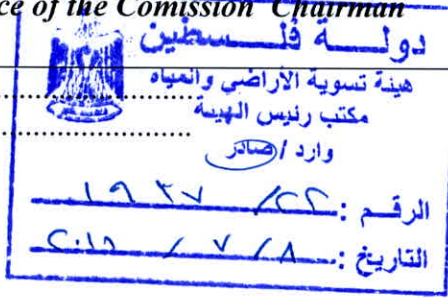 ce of the Comission Chairman
دولــة فلــسطين
هيئة تسوية الأراضي والمياه
مكتب رئيس الهيئة
وارد / صادر
الرقم : ٢٢/
التاريخ : ٨ / ٧ /